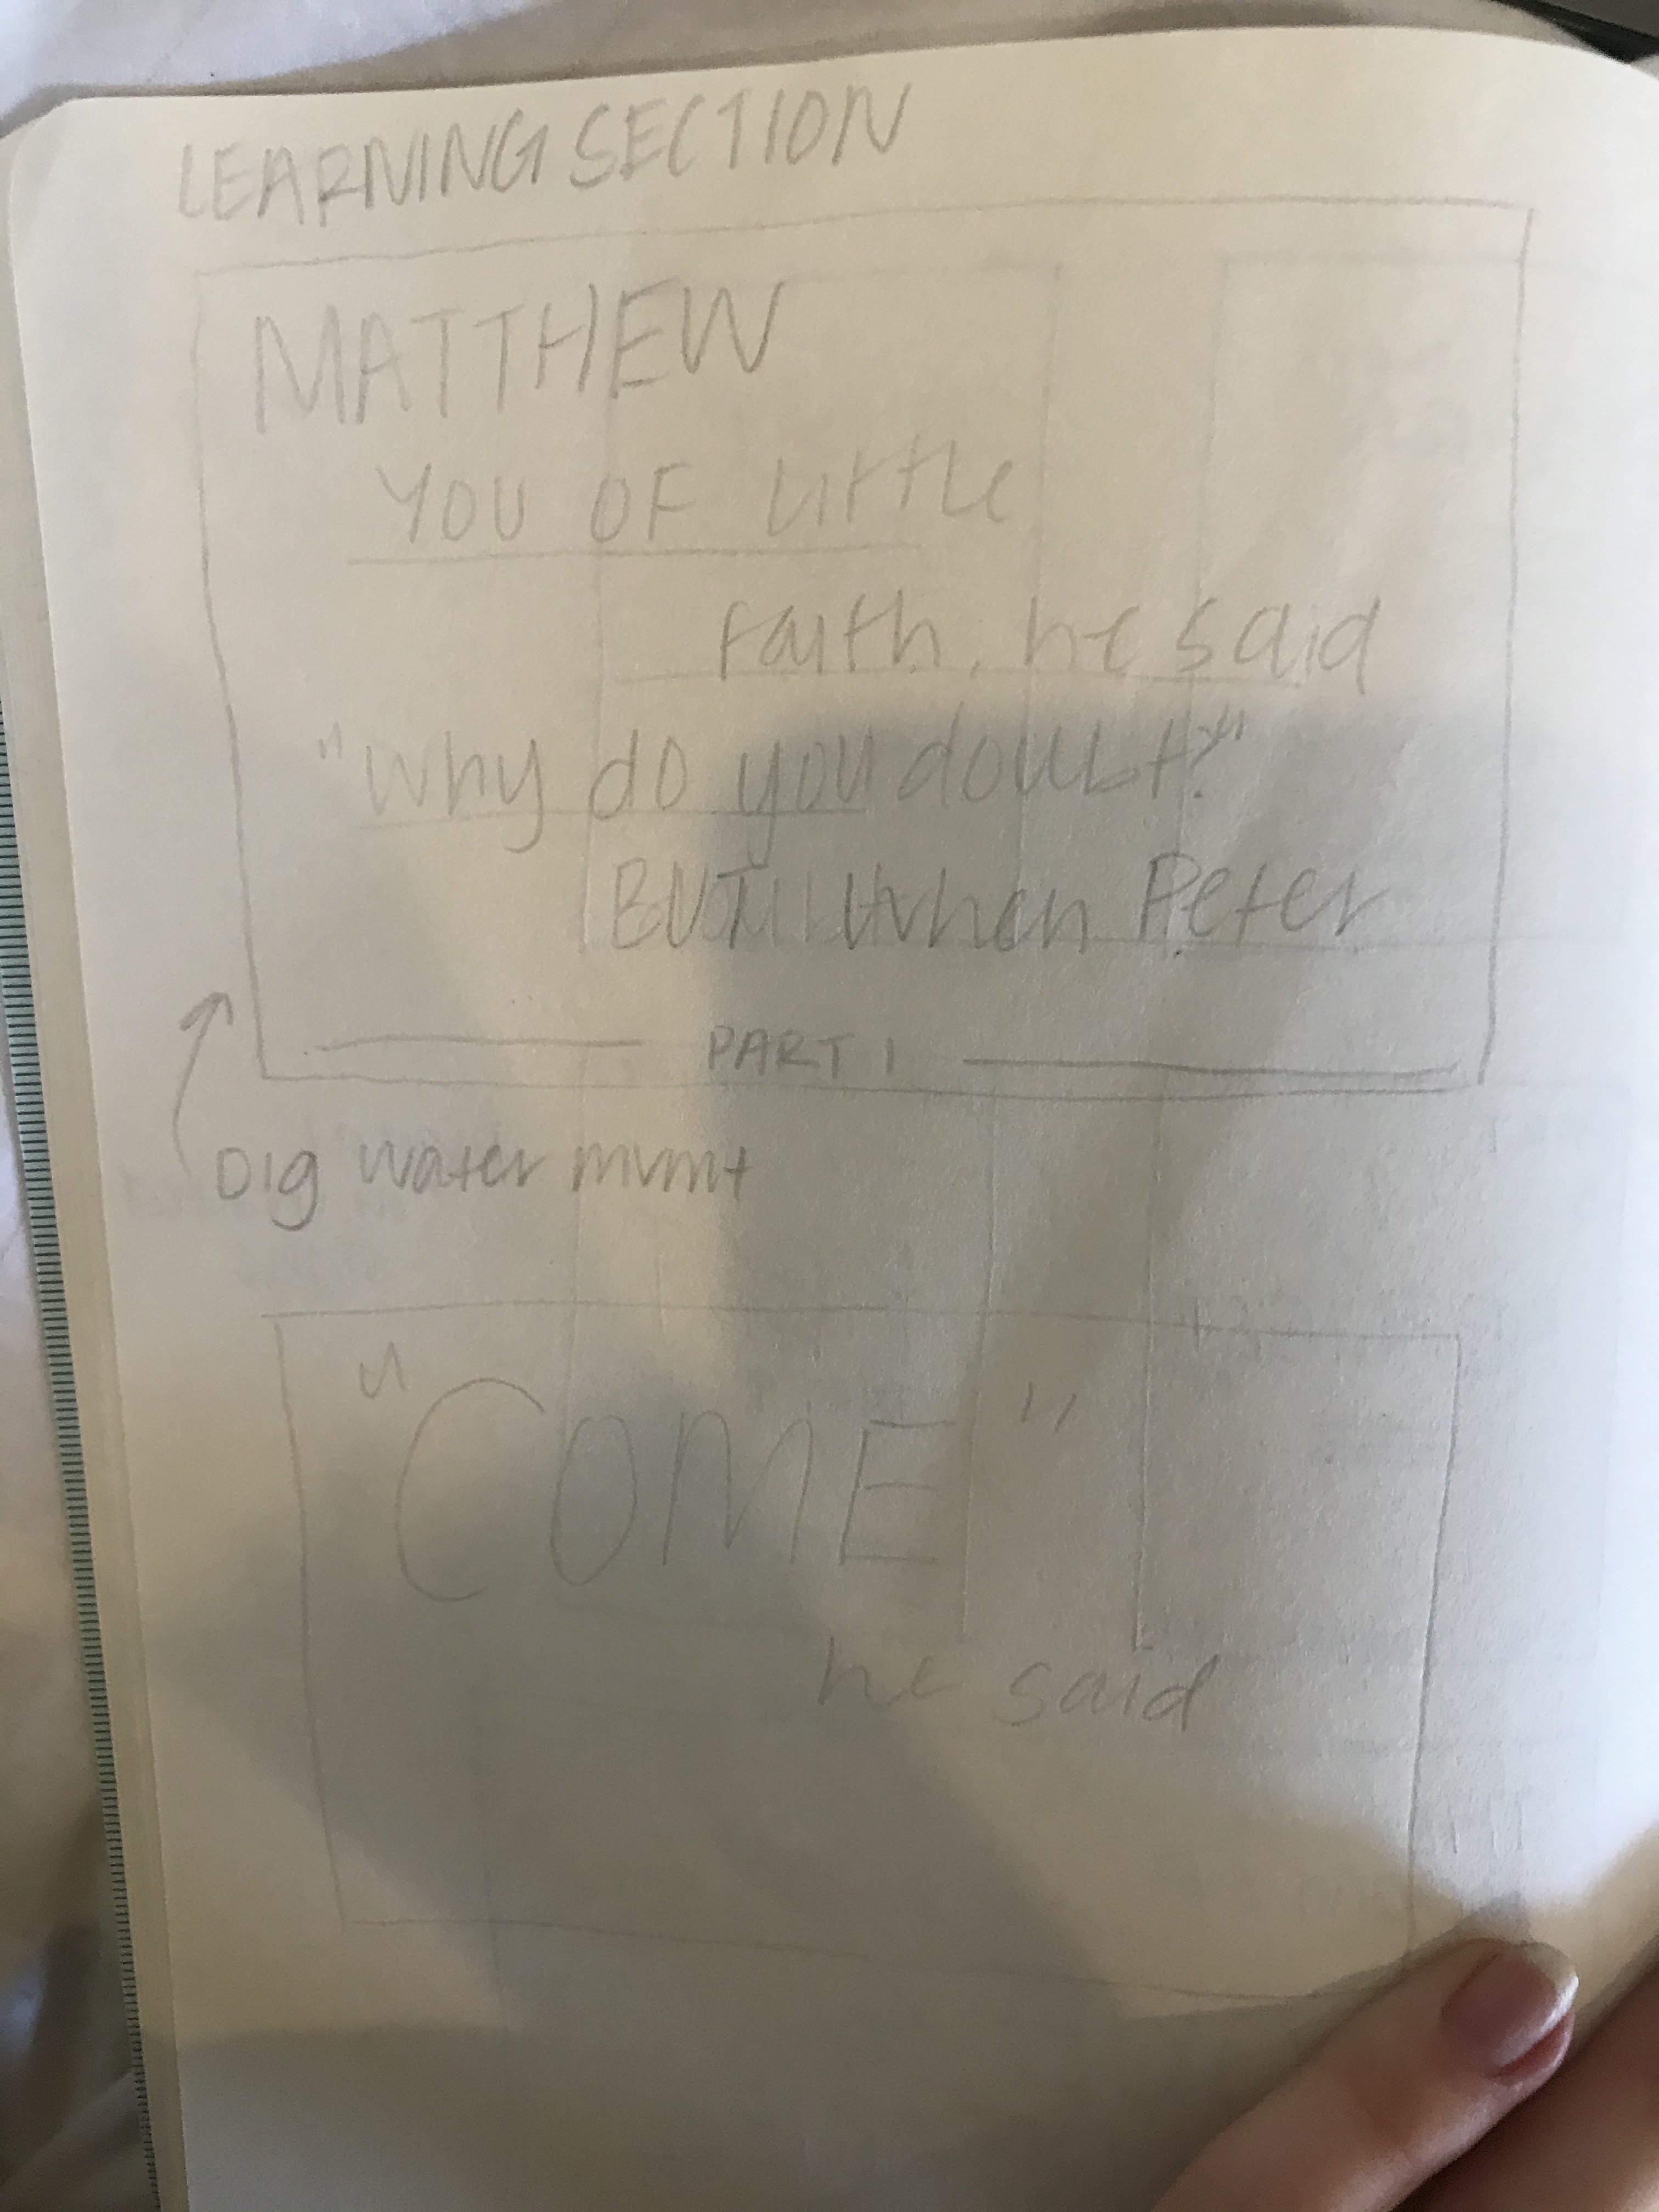 LEARNING SECTION
MATTHEW
YOU OF little
Faith, he said
"why do you doubt?"
BUT when Peter
PART 1
Dig water mvmt
"COME"
he said